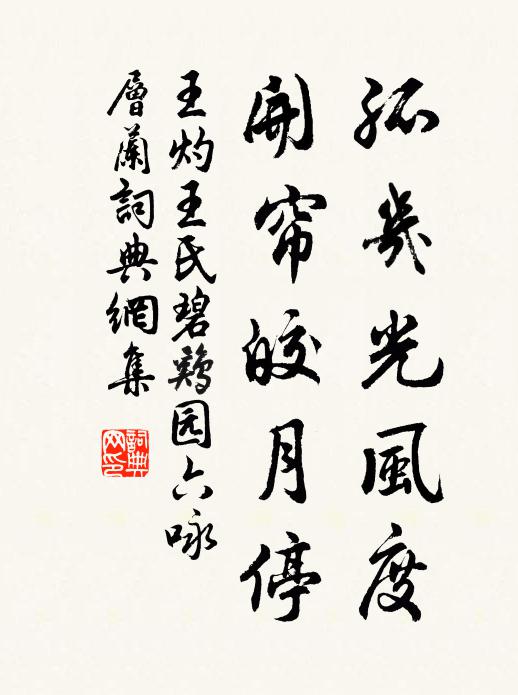 孤幾光風度
開帘皎月停
王灼王氏碧鷄园六咏
層蘭詞典網集
詞典网印